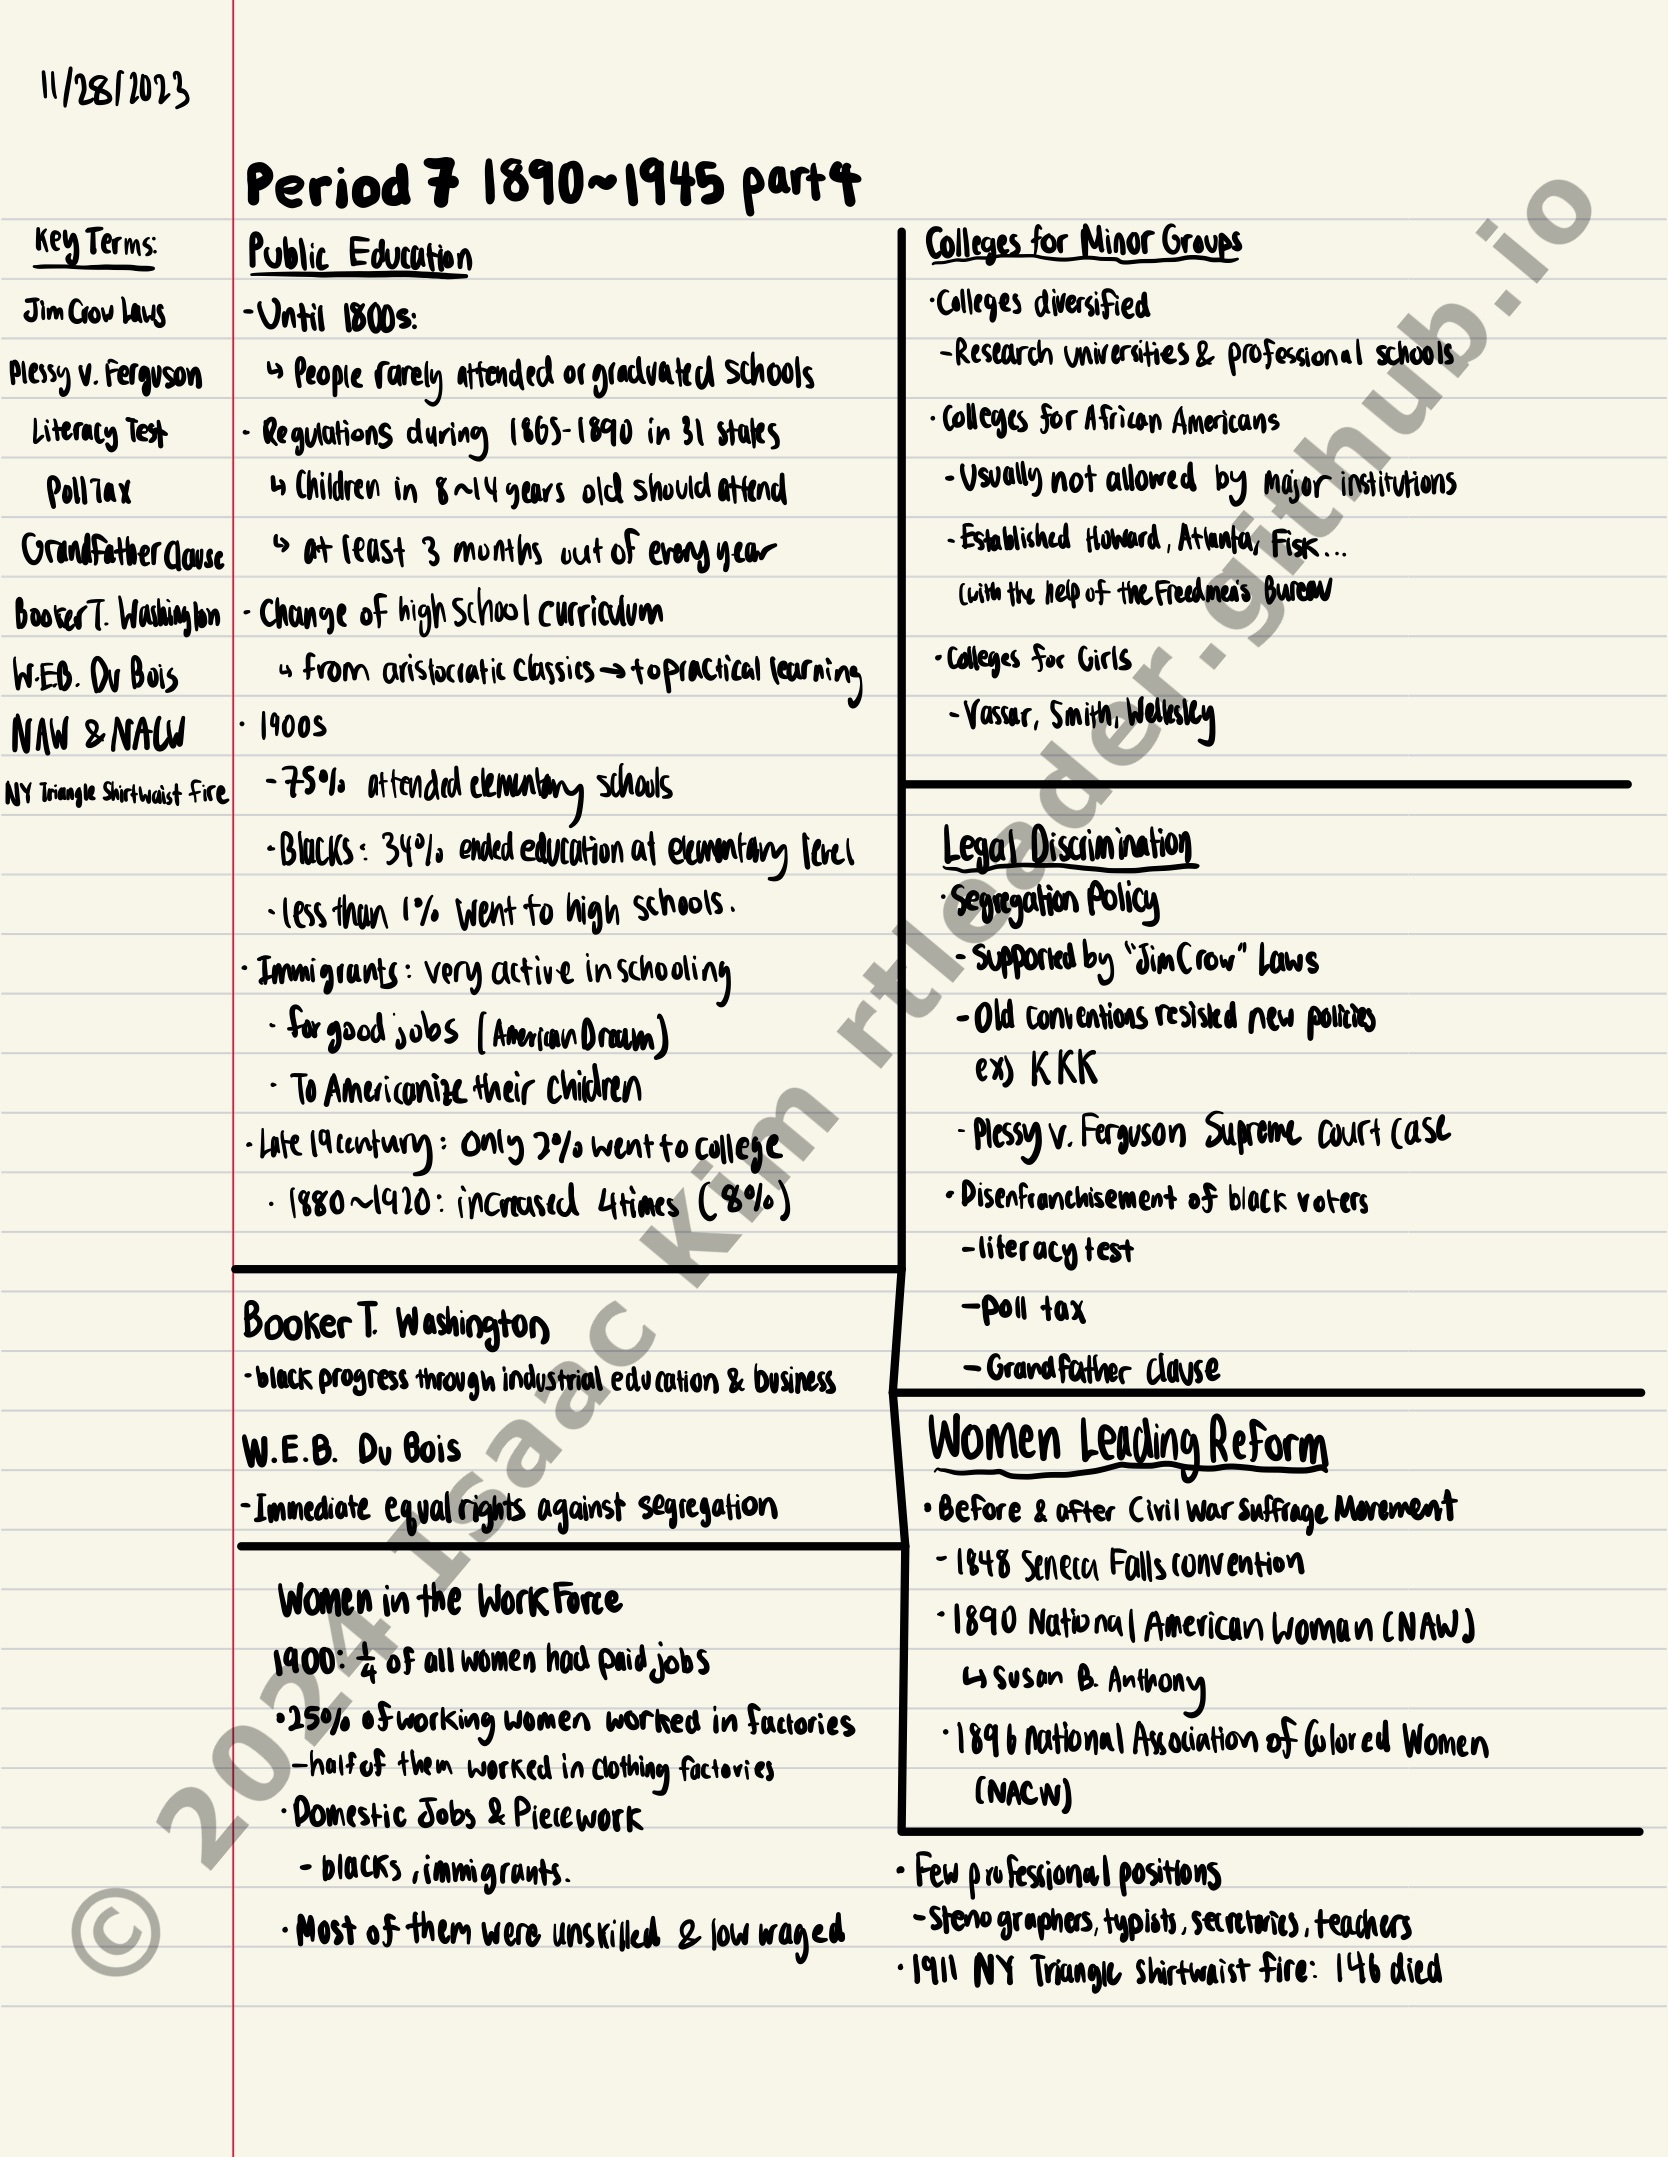 11/28/2023
Period 7 1890~1945 part 4
Key Terms:
Jim Crow Laws
Plessy v. Ferguson
Literacy Test
Poll Tax
Grandfather Clause
Booker T. Washington
W.E.B. Du Bois
NAW & NACW
NY Triangle Shirtwaist fire
Public Education
- Until 1800s:
↳ People rarely attended or graduated schools
· Regulations during 1865-1890 in 31 states
↳ Children in 8~14 years old should attend
↳ at least 3 months out of every year
· Change of high school curriculum
↳ from aristocratic classics → to practical learning
· 1900s
- 75% attended elementary schools
· Blacks: 34% ended education at elementary level
· less than 1% went to high schools.
· Immigrants: very active in schooling
· for good jobs (American Dream)
· To Americanize their children
· Late 19 century: Only 2% went to college
· 1880~1920: increased 4 times (8%)
Booker T. Washington
- black progress through industrial education & business
W.E.B. Du Bois
- Immediate equal rights against segregation
Women in the Work Force
1900: 1/4 of all women had paid jobs
· 25% of working women worked in factories
- half of them worked in clothing factories
· Domestic Jobs & Piecework
- blacks, immigrants.
· Most of them were unskilled & low waged
Colleges for Minor Groups
· Colleges diversified
- Research universities & professional schools
· Colleges for African Americans
- Usually not allowed by major institutions
- Established Howard, Atlanta, Fisk...
(with the help of the Freedmen's Bureau
· Colleges for Girls
- Vassar, Smith, Wellesley
Legal Discrimination
· Segregation Policy
- Supported by "Jim Crow" Laws
- Old conventions resisted new policies
ex) KKK
- Plessy v. Ferguson Supreme court case
· Disenfranchisement of black voters
- literacy test
- poll tax
- Grandfather Clause
Women Leading Reform
· Before & after Civil War Suffrage Movement
- 1848 Seneca Falls convention
· 1890 National American Woman (NAW)
↳ Susan B. Anthony
· 1896 National Association of Colored Women
(NACW)
· Few professional positions
- Stenographers, typists, secretaries, teachers
· 1911 NY Triangle Shirtwaist fire: 146 died
© 2024 Isaac Kim rtleader.github.io